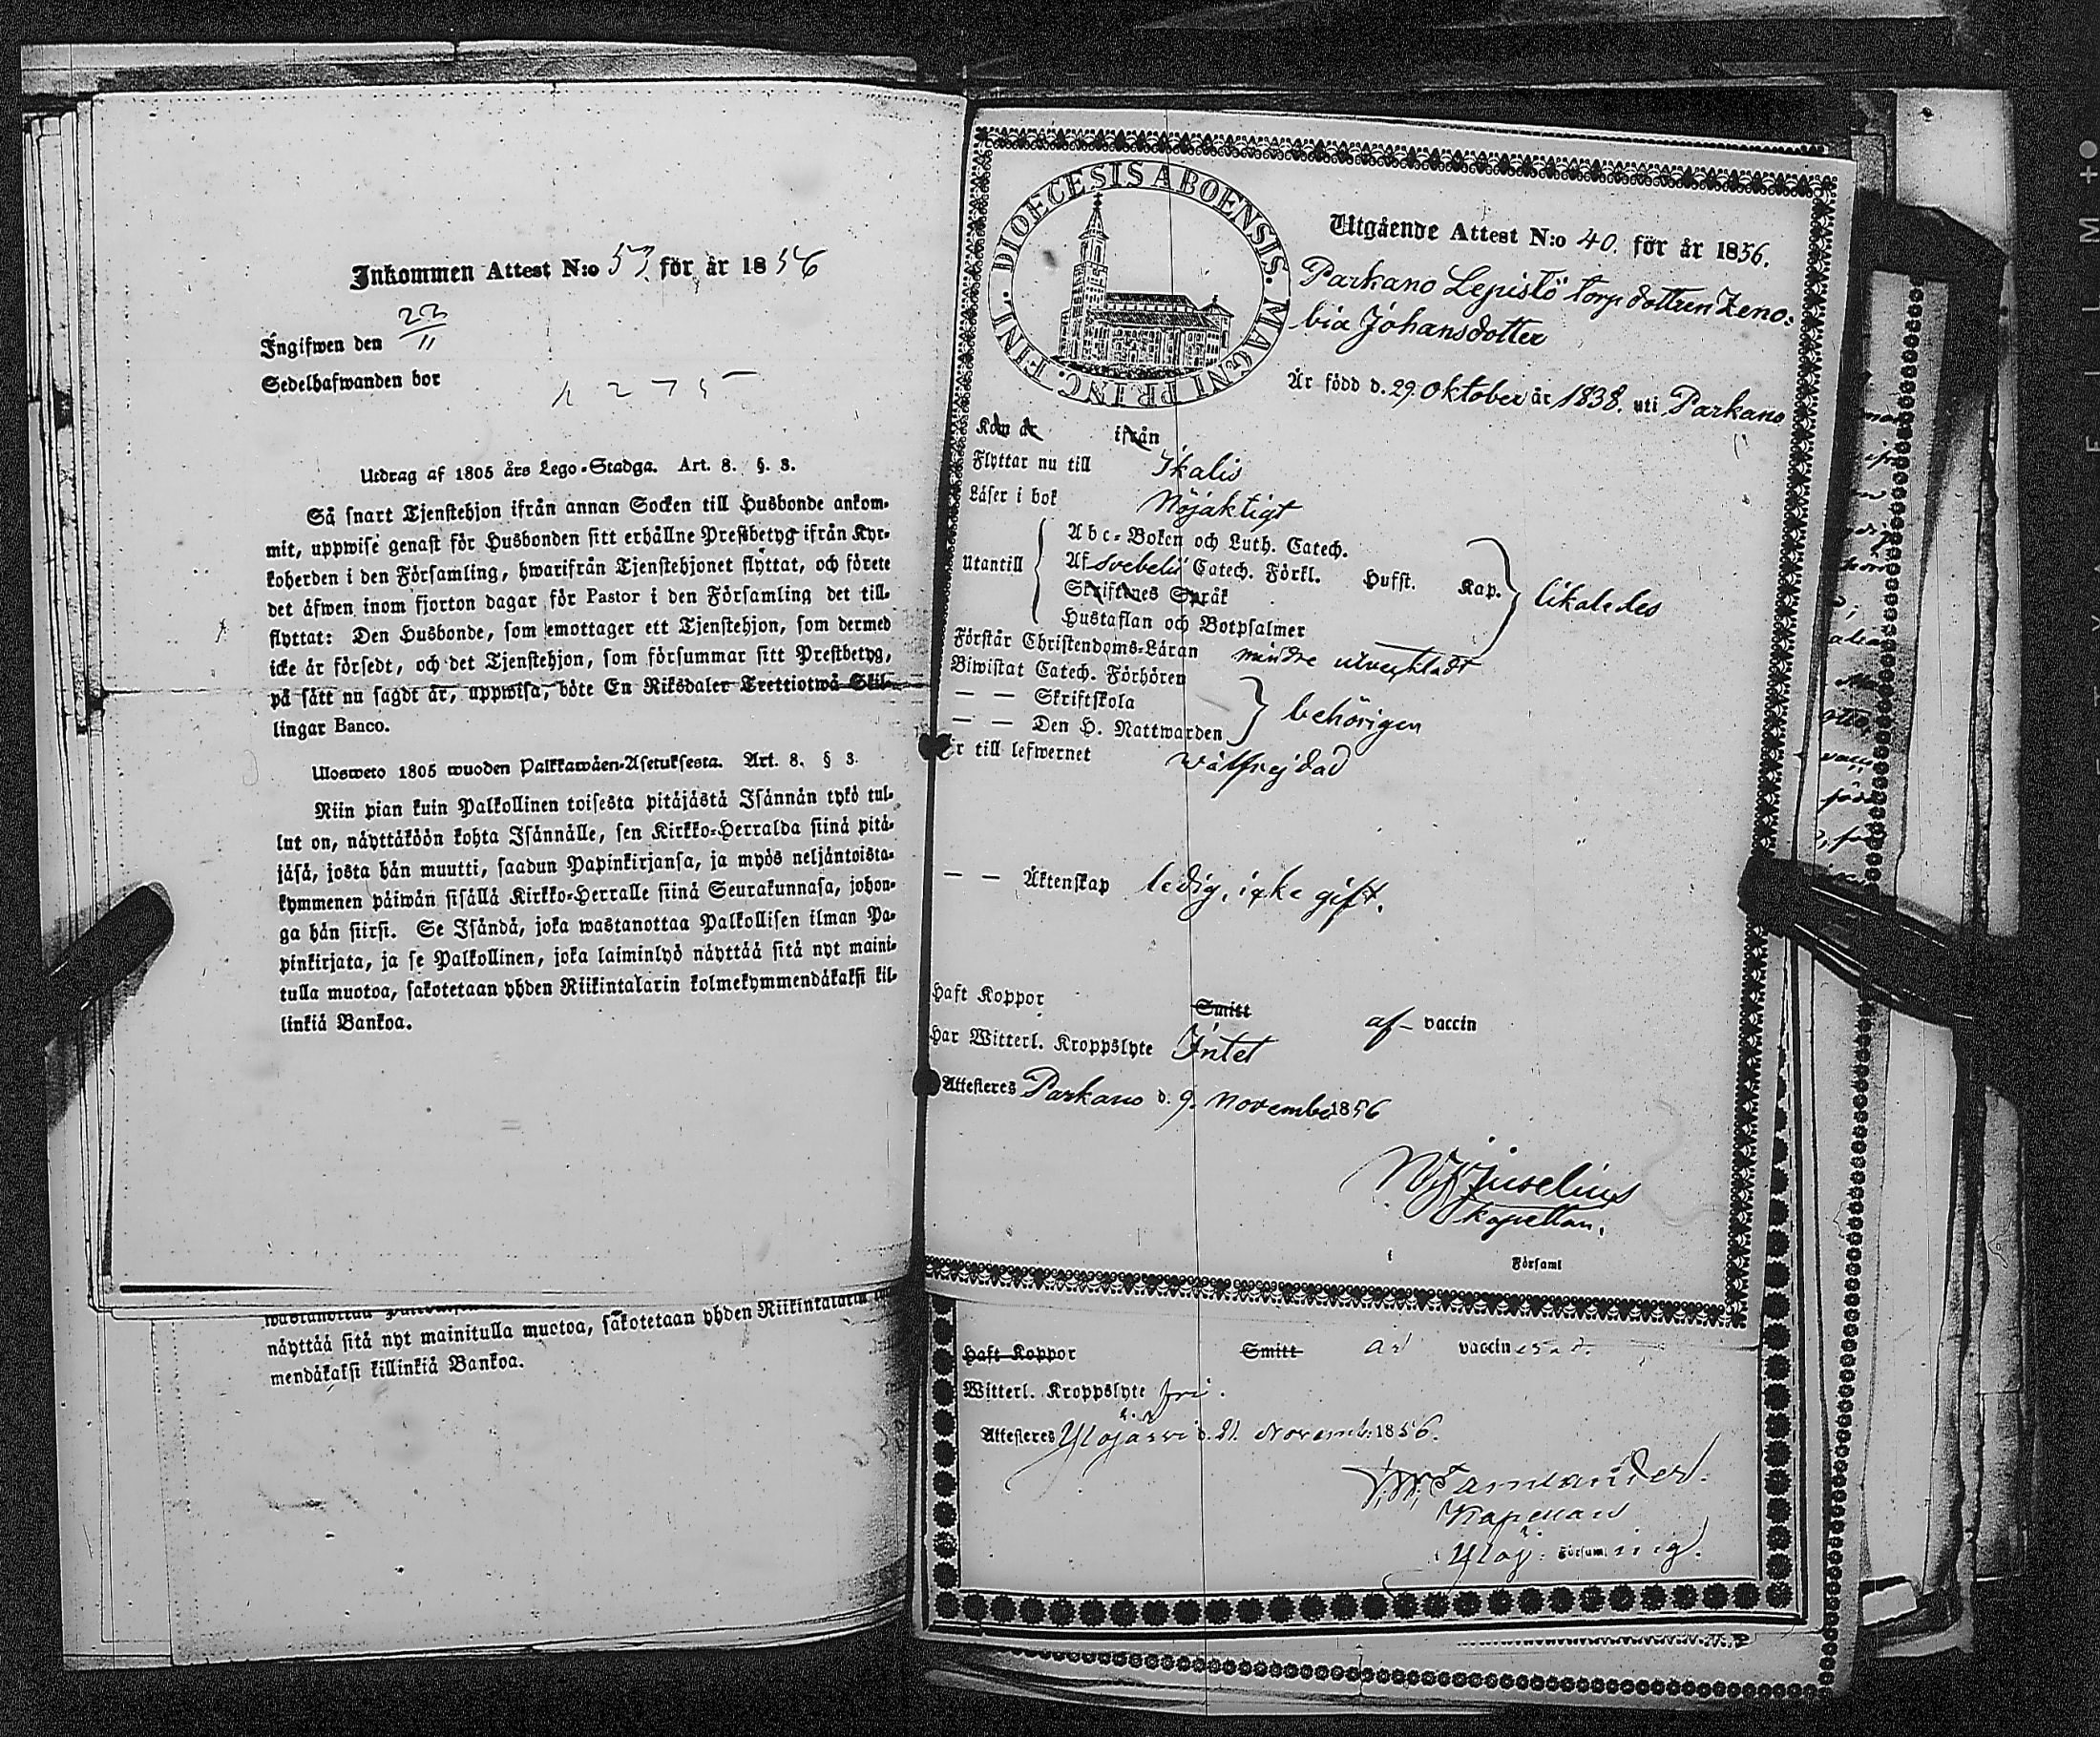 Inkommen Attest N:o 53 för år 1856
Ingifwen den 23/11
Sedelhafwanden bor
Utdrag af 1805 års Lego-Stadga. Art. 8. §. 3.
Så snart Tjenstehjon ifrån annan Socken till Husbonde ankom-
mit, uppwise genast för Husbonden sitt erhållne Prestbetyg ifrån Kyr-
koherden i den Församling, hwarifrån Tjenstehjonet flyttat, och förete
det äfwen inom fjorton dagar för Pastor i den Församling det till-
flyttat: Den Husbonde, som emottager ett Tjenstehjon, som dermed
icke är försedt, och det Tjenstehjon, som försummar sitt Prestbetyg,
på sätt nu sagdt är, uppwisa, böte En Riksdaler Trettiotwå Skil-
lingar Banco.
Ulosweto 1805 wuoden Palkkawäen-Asetuksesta. Art. 8. § 3.
Niin pian kuin Palkollinen toisesta pitäjästä Isännän tykö tul-
lut on, näyttäköön kohta Isännälle, sen Kirkko-Herralda siinä pitä-
jäsä, josta hän muutti, saadun Papinkirjansa, ja myös neljäntoista-
kymmenen päiwän sisällä Kirkko-Herralle siinä Seurakunnasa, johon-
ga hän siirsi. Se Isändä, joka wastanottaa Palkollisen ilman Pa-
pinkirjata, ja se Palkollinen, joka laiminlyö näyttää sitä nyt maini-
tulla muotoa, sakotetaan yhden Riikintalarin kolmekymmendäkaksi kil-
linkiä Bankoa.
näyttää sitä nyt mainitulla muotoa, sakotetaan yhden Riikintalarin
mendäkaksi killinkiä Bankoa.
DIOECESIS ABOENSIS. MAGNI PRINC. FINL.
Utgående Attest N:o 40. för år 1856.
Parkano Lepistö torp dottren Zeno-
bia Johansdotter
Är född d. 29. Oktober år 1838. uti Parkano
Kom år ifrån
Flyttar nu till Ikalis
Läser i bok Nöjaktigt
Utantill
Abc-Boken och Luth. Catech.
Af Svebelii Catech. Förkl. Hufst. Kap. likaledes
Skriftenes Språk
Hustaflan och Botpsalmer
Förstår Christendoms-Läran mindre utveckladt
Biwistat Catech. Förhören
— — Skriftskola behörigen
— — Den H. Nattwarden
Är till lefwernet wälfrejdad
— — Äktenskap ledig, icke gift.
Haft Koppor Smitt af vaccin
Har Witterl. Kroppslyte Intet
Attesteres Parkano d. 9. November 1856
Juselius
Kapellan.
Församl
Haft Koppor Smitt är vaccinerad.
Witterl. Kroppslyte fri.
Attesteres Ylöjärvi d. 21. Novemb. 1856.
Kapellan
Ylöj. Församling.